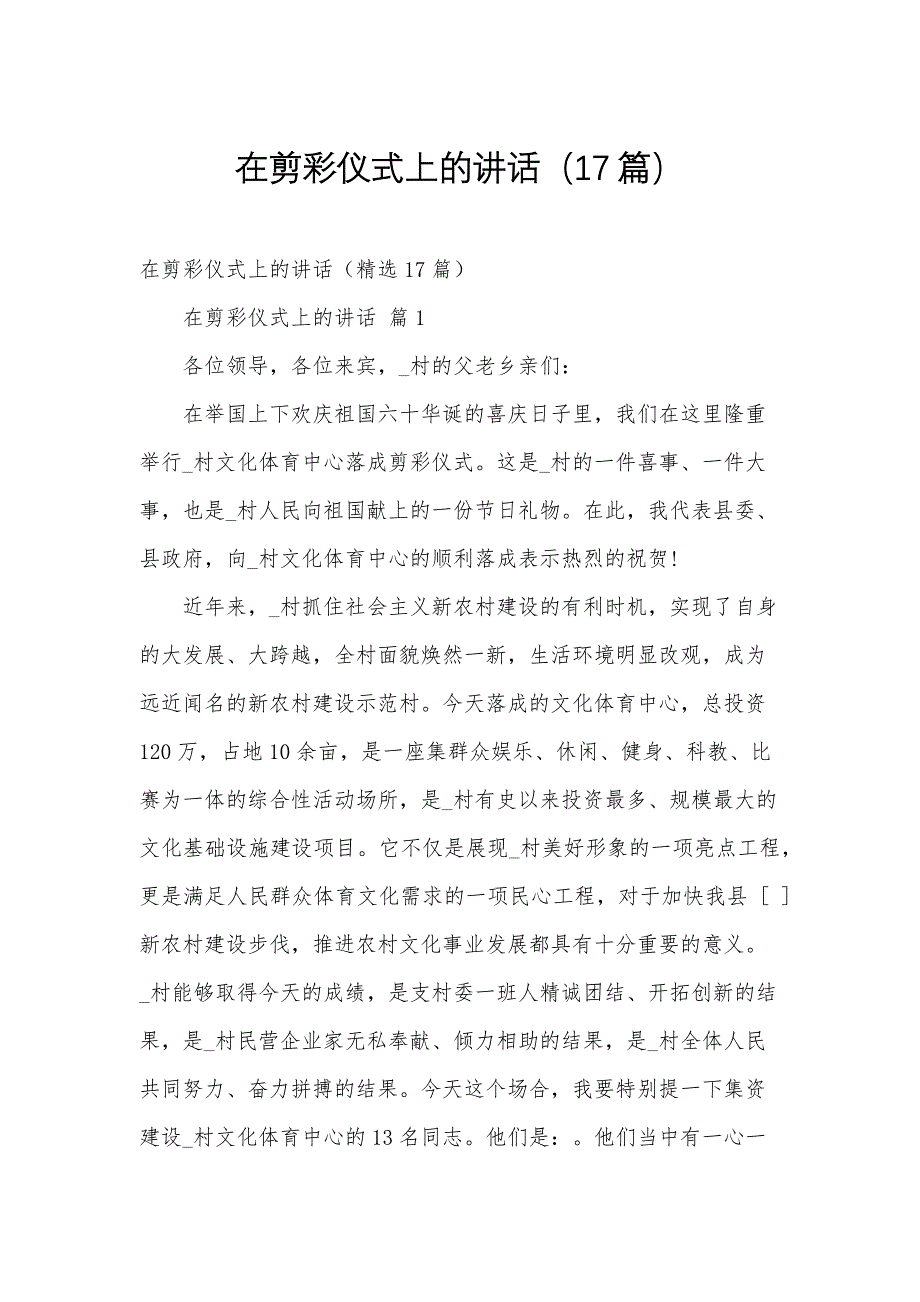 在剪彩仪式上的讲话（17篇）
在剪彩仪式上的讲话（精选17篇）
在剪彩仪式上的讲话 篇1
各位领导，各位来宾，_村的父老乡亲们：
在举国上下欢庆祖国六十华诞的喜庆日子里，我们在这里隆重
举行_村文化体育中心落成剪彩仪式。这是_村的一件喜事、一件大
事，也是_村人民向祖国献上的一份节日礼物。在此，我代表县委、
县政府，向_村文化体育中心的顺利落成表示热烈的祝贺!
近年来，_村抓住社会主义新农村建设的有利时机，实现了自身
的大发展、大跨越，全村面貌焕然一新，生活环境明显改观，成为
远近闻名的新农村建设示范村。今天落成的文化体育中心，总投资
120万，占地10余亩，是一座集群众娱乐、休闲、健身、科教、比
赛为一体的综合性活动场所，是_村有史以来投资最多、规模最大的
文化基础设施建设项目。它不仅是展现_村美好形象的一项亮点工程，
更是满足人民群众体育文化需求的一项民心工程，对于加快我县 [ ]
新农村建设步伐，推进农村文化事业发展都具有十分重要的意义。
_村能够取得今天的成绩，是支村委一班人精诚团结、开拓创新的结
果，是_村民营企业家无私奉献、倾力相助的结果，是_村全体人民
共同努力、奋力拼搏的结果。今天这个场合，我要特别提一下集资
建设_村文化体育中心的13名同志。他们是：。他们当中有一心一